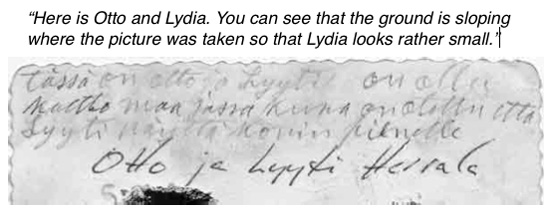 “Here is Otto and Lydia. You can see that the ground is sloping
where the picture was taken so that Lydia looks rather small.”
tässä on otto ja Lyyti on ollu
maa jossa kuva on otettu että
Lyyti näyttä kovin pienelle
Otto ja Lyyti Hessala